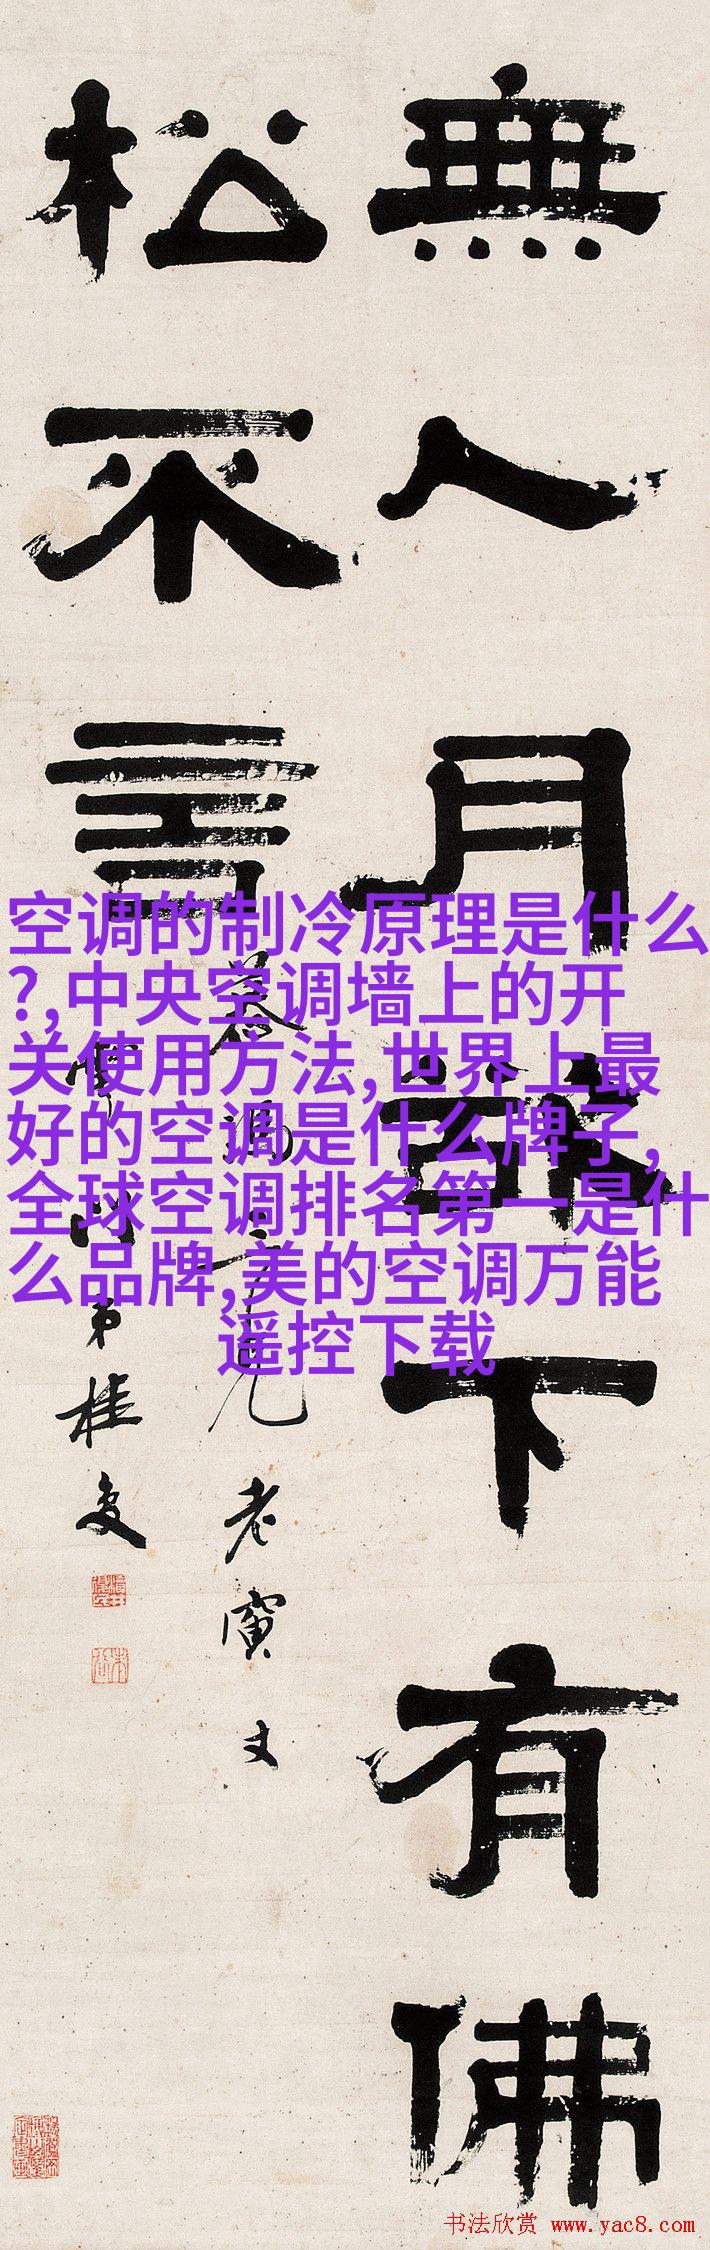 無人月敲下有佛
松不言
空调的制冷原理是什么
?,中央空调墙上的开
关使用方法,世界上最
好的空调是什么牌子,
全球空调排名第一是什
么品牌,美的空调万能
遥控下载
老寅丈
弟桂
书法欣赏 www.yac8.com